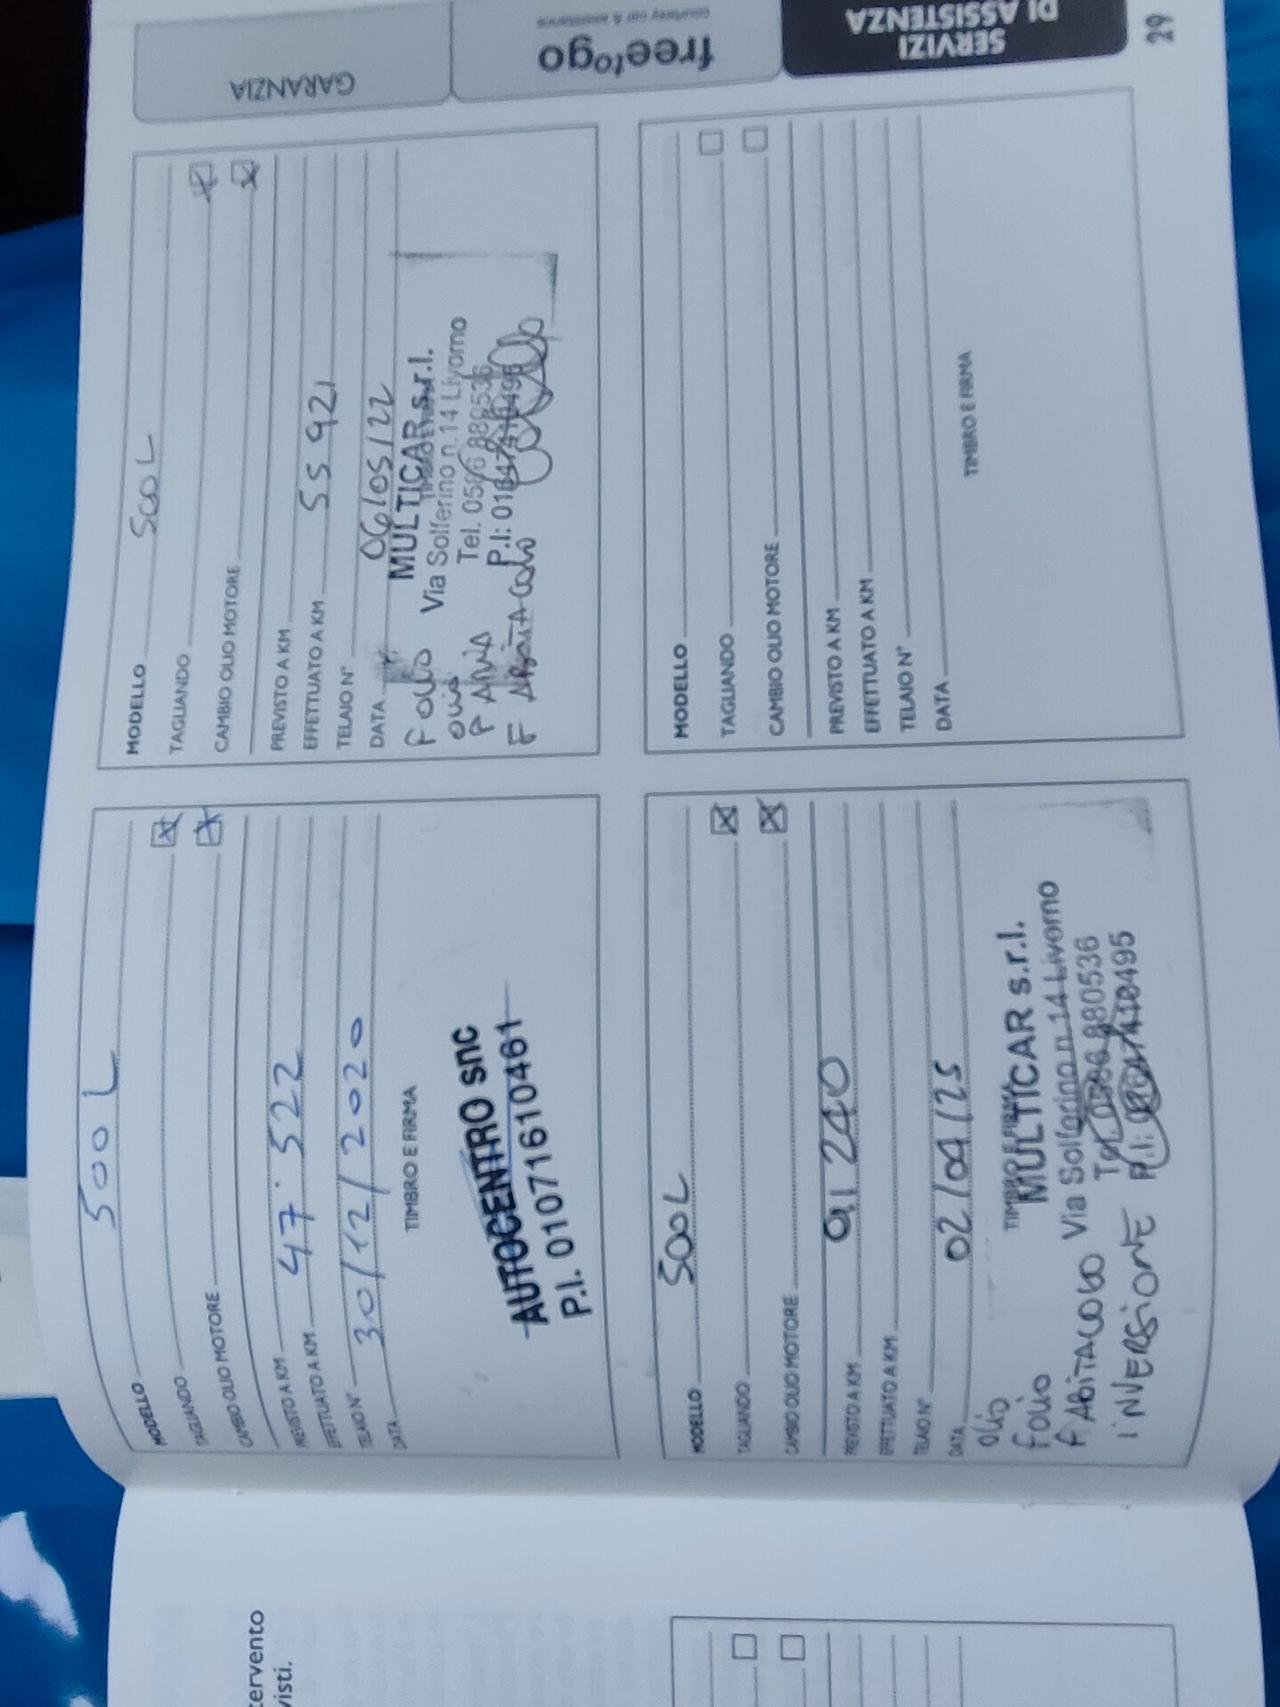 MODELLO 500 L
TAGLIANDO
CAMBIO OLIO MOTORE
PREVISTO A KM
EFFETTUATO A KM 47.522
TELAIO N°
DATA 30/12/2020
TIMBRO E FIRMA
AUTOCENTRO snc
P.I. 01071610461
MODELLO 500L
TAGLIANDO
CAMBIO OLIO MOTORE
PREVISTO A KM
EFFETTUATO A KM 55921
TELAIO N°
DATA 06/05/22
MULTICAR s.r.l.
Via Solferino n.14 Livorno
Tel. 0586 880536
F OLIO
OLIO
F ARIA
F ABITACOLO
MODELLO 500L
TAGLIANDO
CAMBIO OLIO MOTORE
PREVISTO A KM 91240
EFFETTUATO A KM
TELAIO N°
DATA 02/04/25
TIMBRO E FIRMA
MULTICAR s.r.l.
Via Solferino n.14 Livorno
Tel. 0586 880536
OLIO
F OLIO
F ABITACOLO
INVERSIONE
MODELLO
TAGLIANDO
CAMBIO OLIO MOTORE
PREVISTO A KM
EFFETTUATO A KM
TELAIO N°
DATA
TIMBRO E FIRMA
GARANZIA
freetogo
courtesy car & assistance
SERVIZI
DI ASSISTENZA
29
tervento
visti.